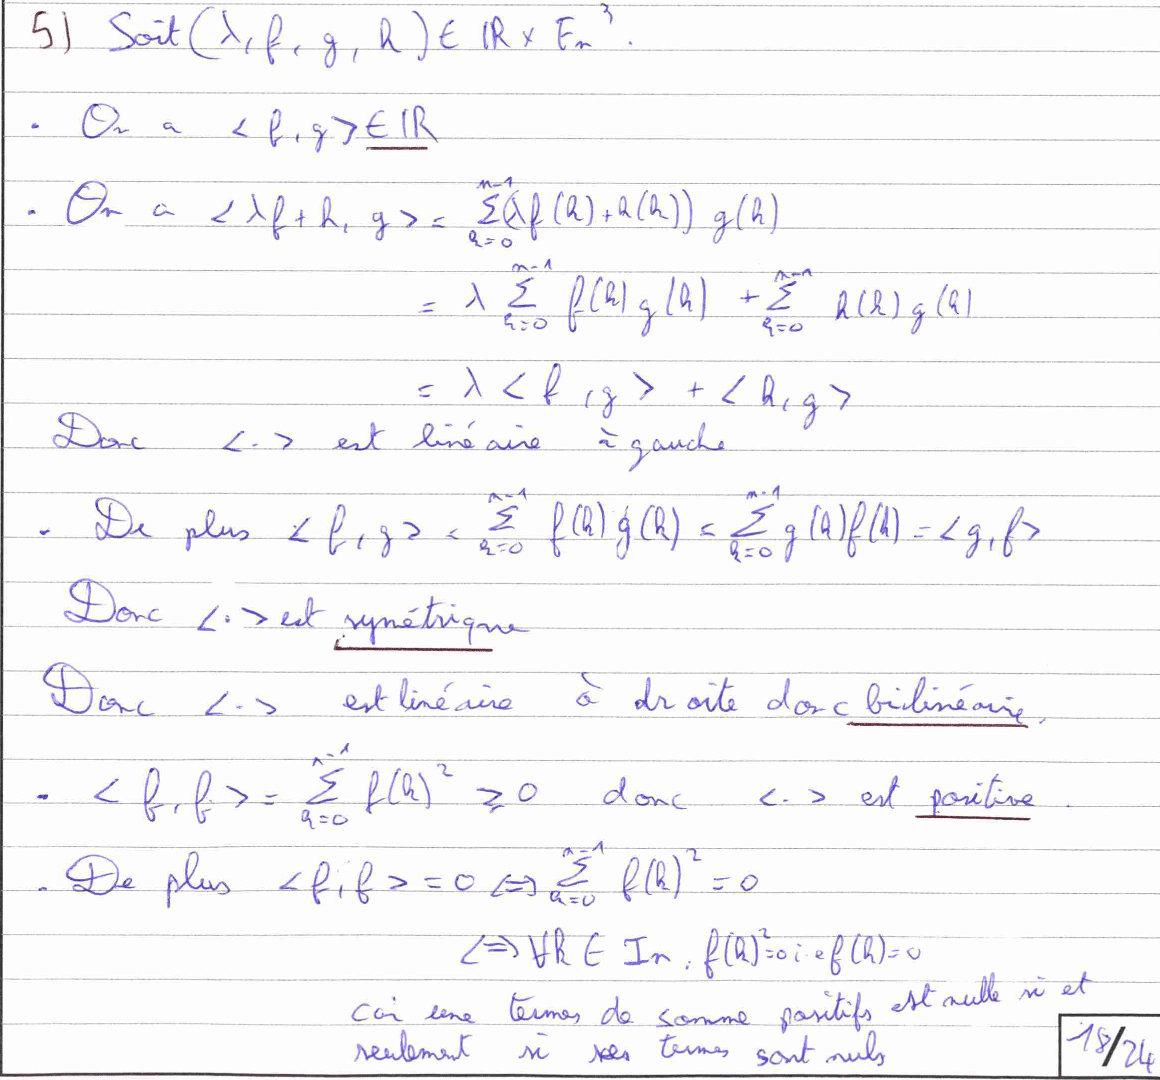 5) Soit (λ, f, g, h) ∈ ℝ × En³.
. On a <f, g> ∈ ℝ
. On a <λf + h, g> = Σ_{k=0}^{n-1} (λf(k) + h(k)) g(k)
= λ Σ_{k=0}^{n-1} f(k) g(k) + Σ_{k=0}^{n-1} h(k) g(k)
= λ <f, g> + <h, g>
Donc <.> est linéaire à gauche
. De plus <f, g> = Σ_{k=0}^{n-1} f(k) g(k) = Σ_{k=0}^{n-1} g(k) f(k) = <g, f>
Donc <.> est symétrique
Donc <.> est linéaire à droite donc bilinéaire.
. <f, f> = Σ_{k=0}^{n-1} f(k)² ≥ 0 donc <.> est positive.
. De plus <f, f> = 0 <=> Σ_{k=0}^{n-1} f(k)² = 0
<=> ∀k ∈ In, f(k)² = 0 i.e f(k) = 0
car une termes de somme positifs est nulle si et
seulement si ses termes sont nuls
18/24